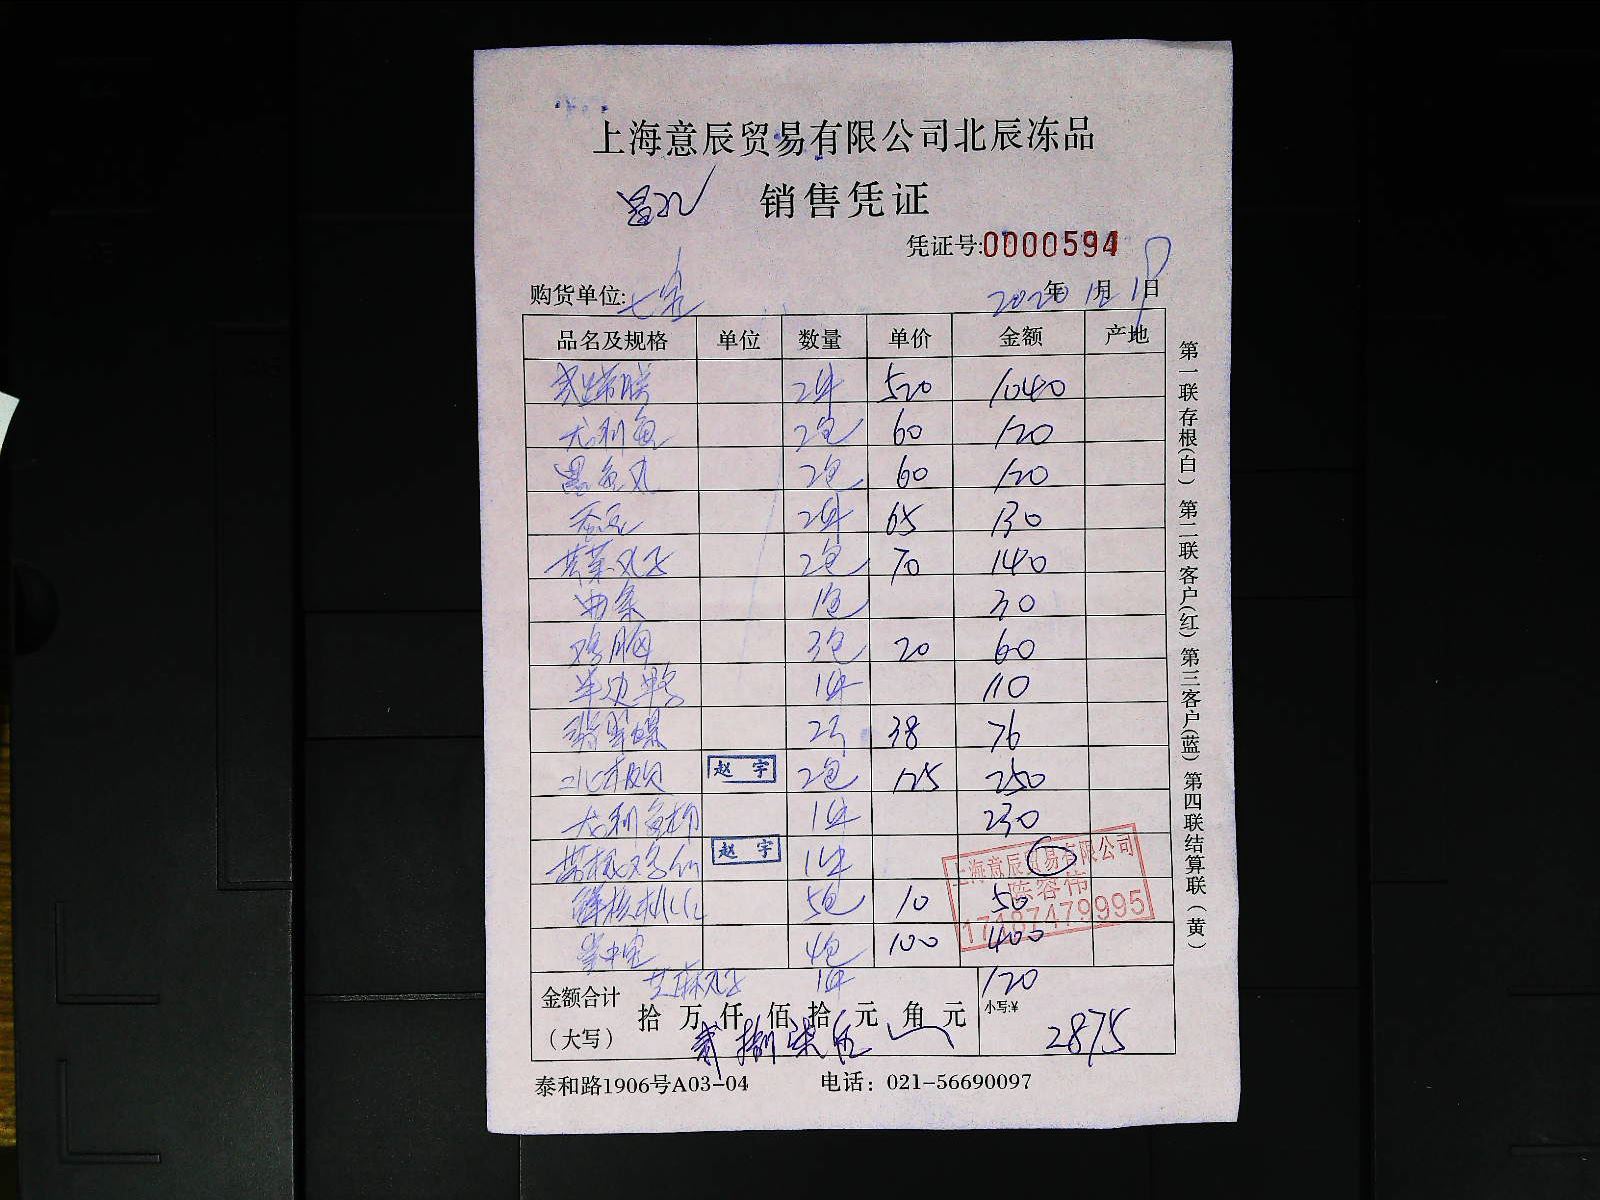 上海意辰贸易有限公司北辰冻品
销售凭证
凭证号:0000594
购货单位:七宝 2020年12月19日
品名及规格 单位 数量 单价 金额 产地
2件 520 1040
尤利鱼 2包 60 120
墨鱼丸 2包 60 120
2件 65 130
贡菜丸子 2包 70 140
1包 30
鸡胸 3包 20 60
半边鸭 1件 110
38 76
赵宇 2包 125 250
尤利鱼柳 1件 230
赵宇 1件
5包 10 50
掌中宝 4包 100 400
芝麻丸子 1件 120
金额合计(大写) 拾万仟佰拾元角元 小写:¥ 2875
贰 捌 柒 伍
上海意辰贸易有限公司
陈容伟
17187479995
泰和路1906号A03-04 电话：021-56690097
第一联存根(白) 第二联客户(红) 第三客户(蓝) 第四联结算联(黄)